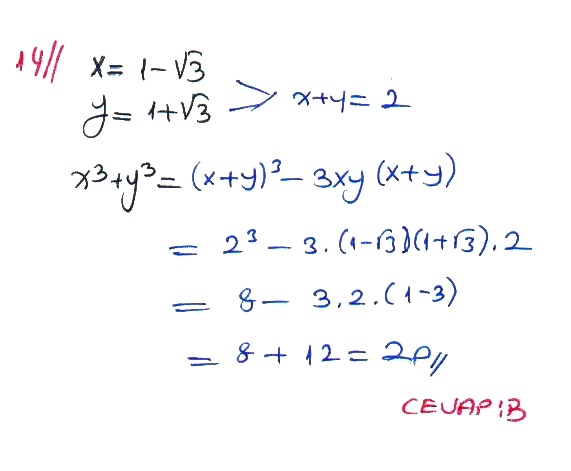 14// x = 1 - √3
y = 1 + √3 > x + y = 2
x³ + y³ = (x + y)³ - 3xy (x + y)
= 2³ - 3 . (1 - √3)(1 + √3) . 2
= 8 - 3 . 2 . (1 - 3)
= 8 + 12 = 20//
CEVAP : B